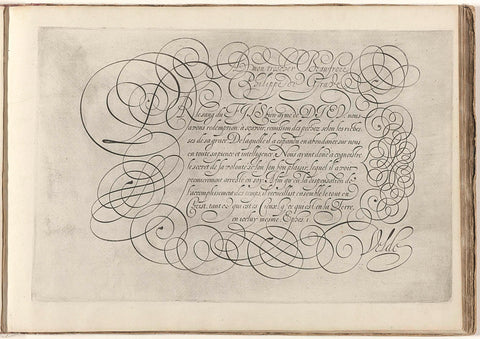 A mon trescher
Philippe de
Par le sang du FILS bien aymé de DIEU nous
avons redemption a sçavoir, remission des pechez selon les riches-
ses de sa grace De laquelle il a espandu en abondance sur nous
en toute sapience et intelligence Nous ayant donné à cognoistre
le secret de sa volonté selon son bon plaisir, lequel il avoit
premierement arresté en soy Afin qu'en la dispensation de
l'accomplissement des temps il recueillist ensemble le tout en
Christ, tant ce qui est es Cieux, que ce qui est en la Terre,
en iceluy mesme Ephes. 1.
Velde